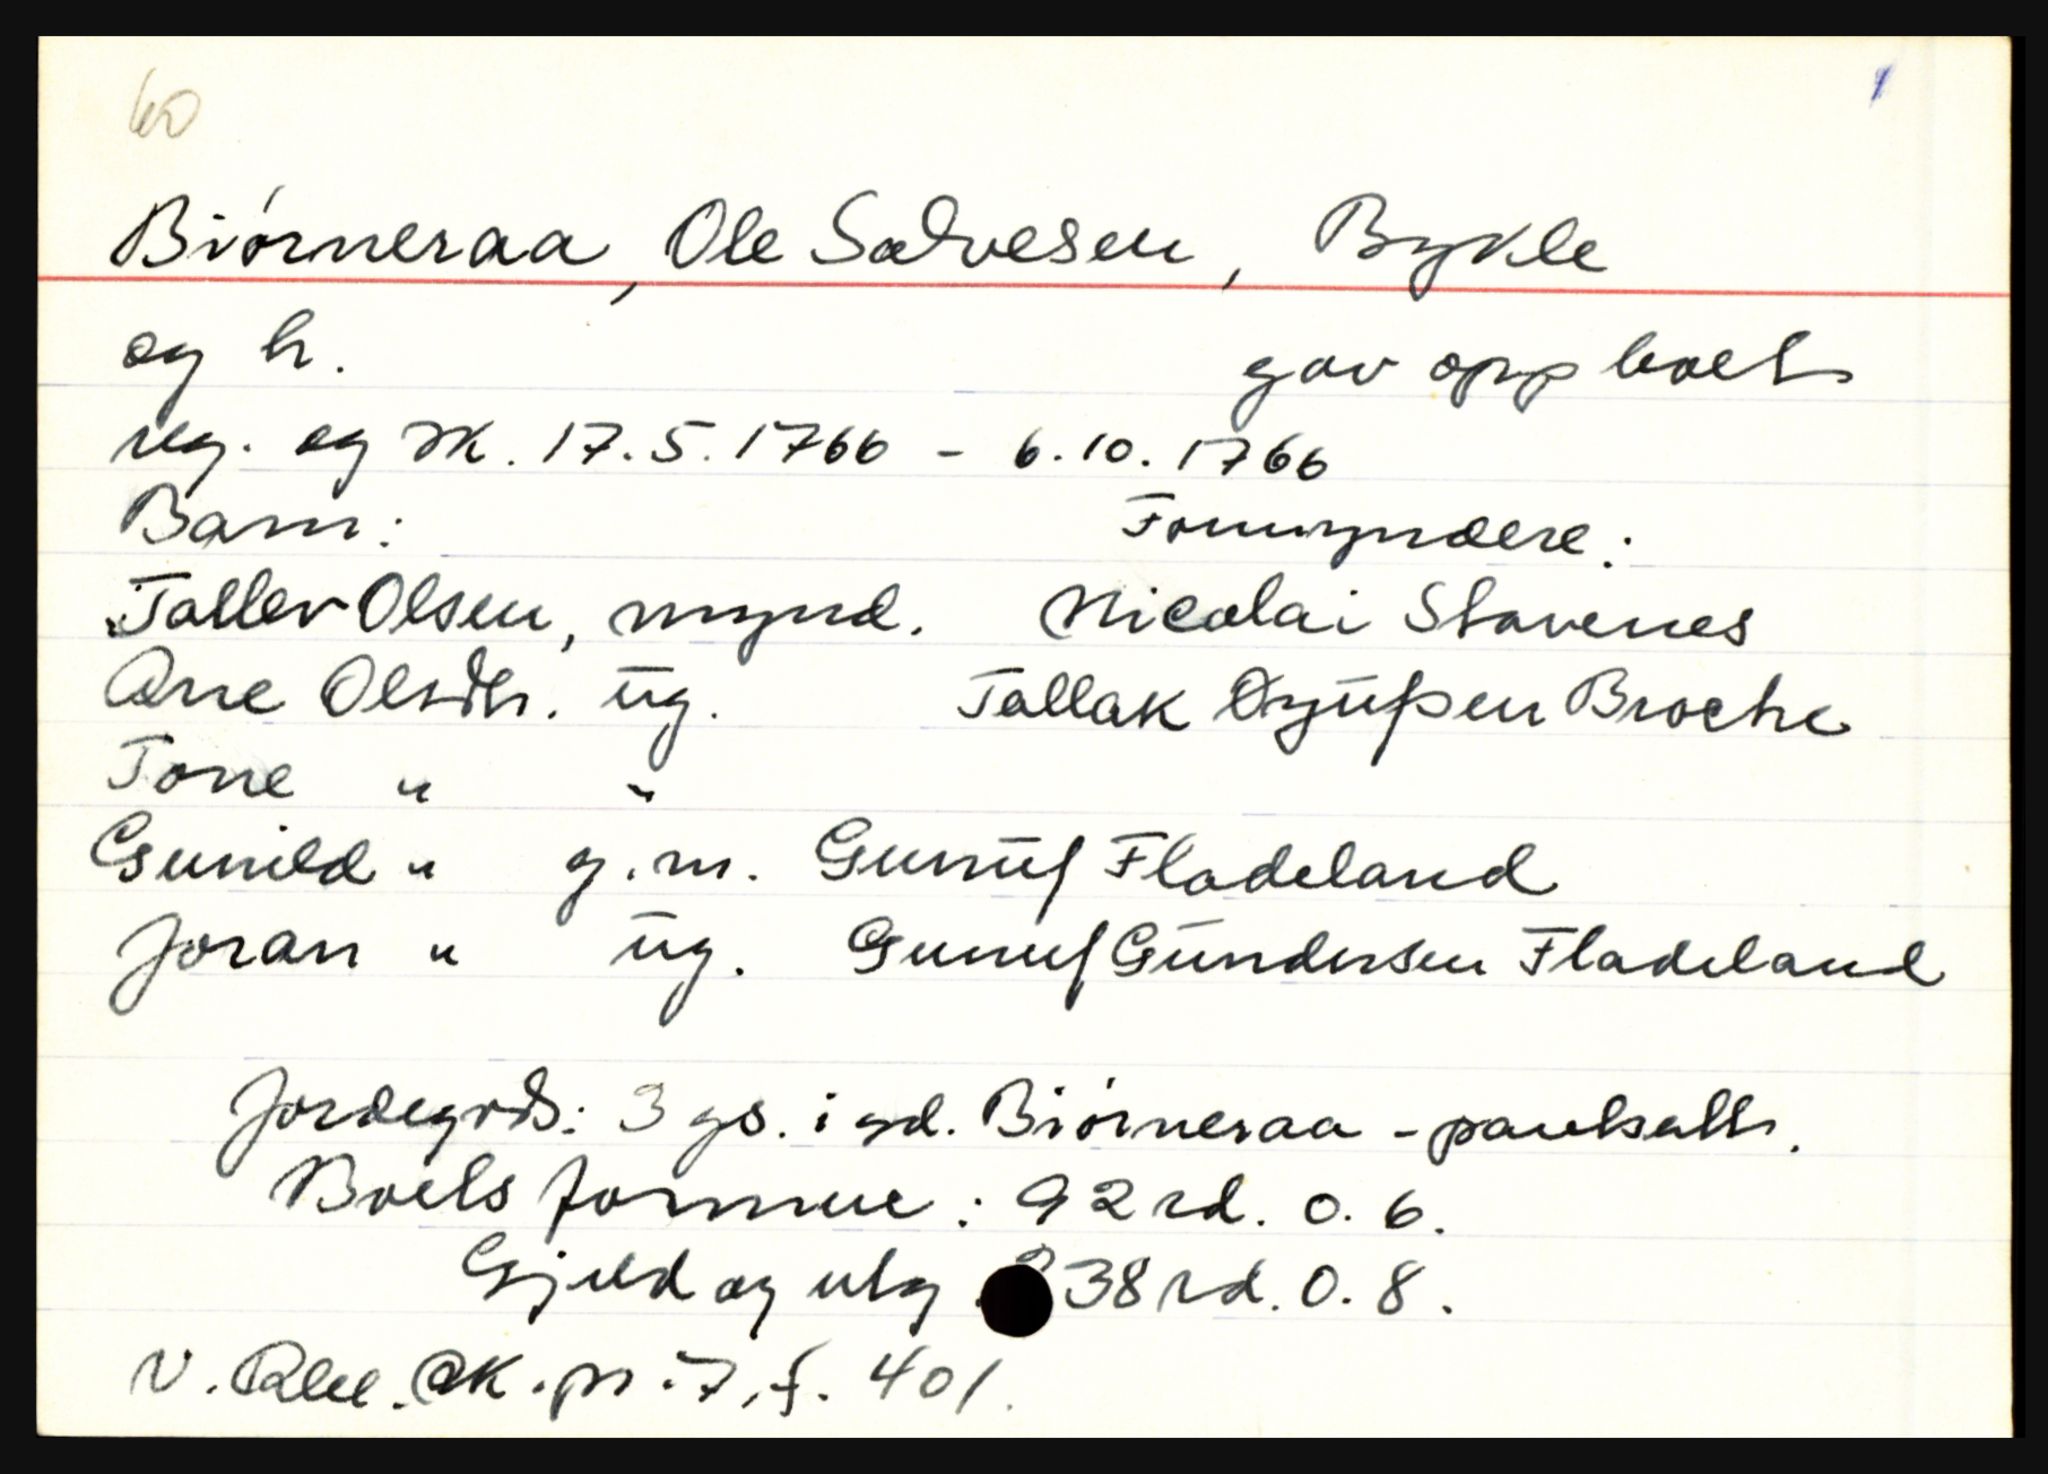 60
Biørneraa, Ole Salvesen, Bykle
og h. gav opp boet
reg. og sk. 17.5.1766 - 6.10.1766
Barn: Formyndere:
Tallev Olsen, mynd. Nicolai Stavenes
Ane Olsdtr. ug. Tallak Broche
Tone " "
Gunild " g.m. Gunuf Fladeland
Joran " ug. Gunuf Gundersen Fladeland
Jordegods: 3 gs. i gd. Biørneraa - pantsatt.
Boets formue: 92 rd. 0. 6.
Gjeld og utg 38 rd. 0. 8.
V. Råb. sk. pr. 7, f. 401.